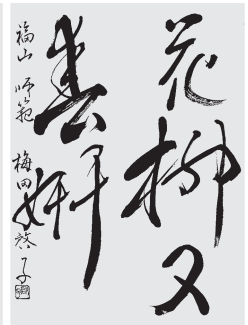 花柳又
春妍
福山 師範 梅田啓子